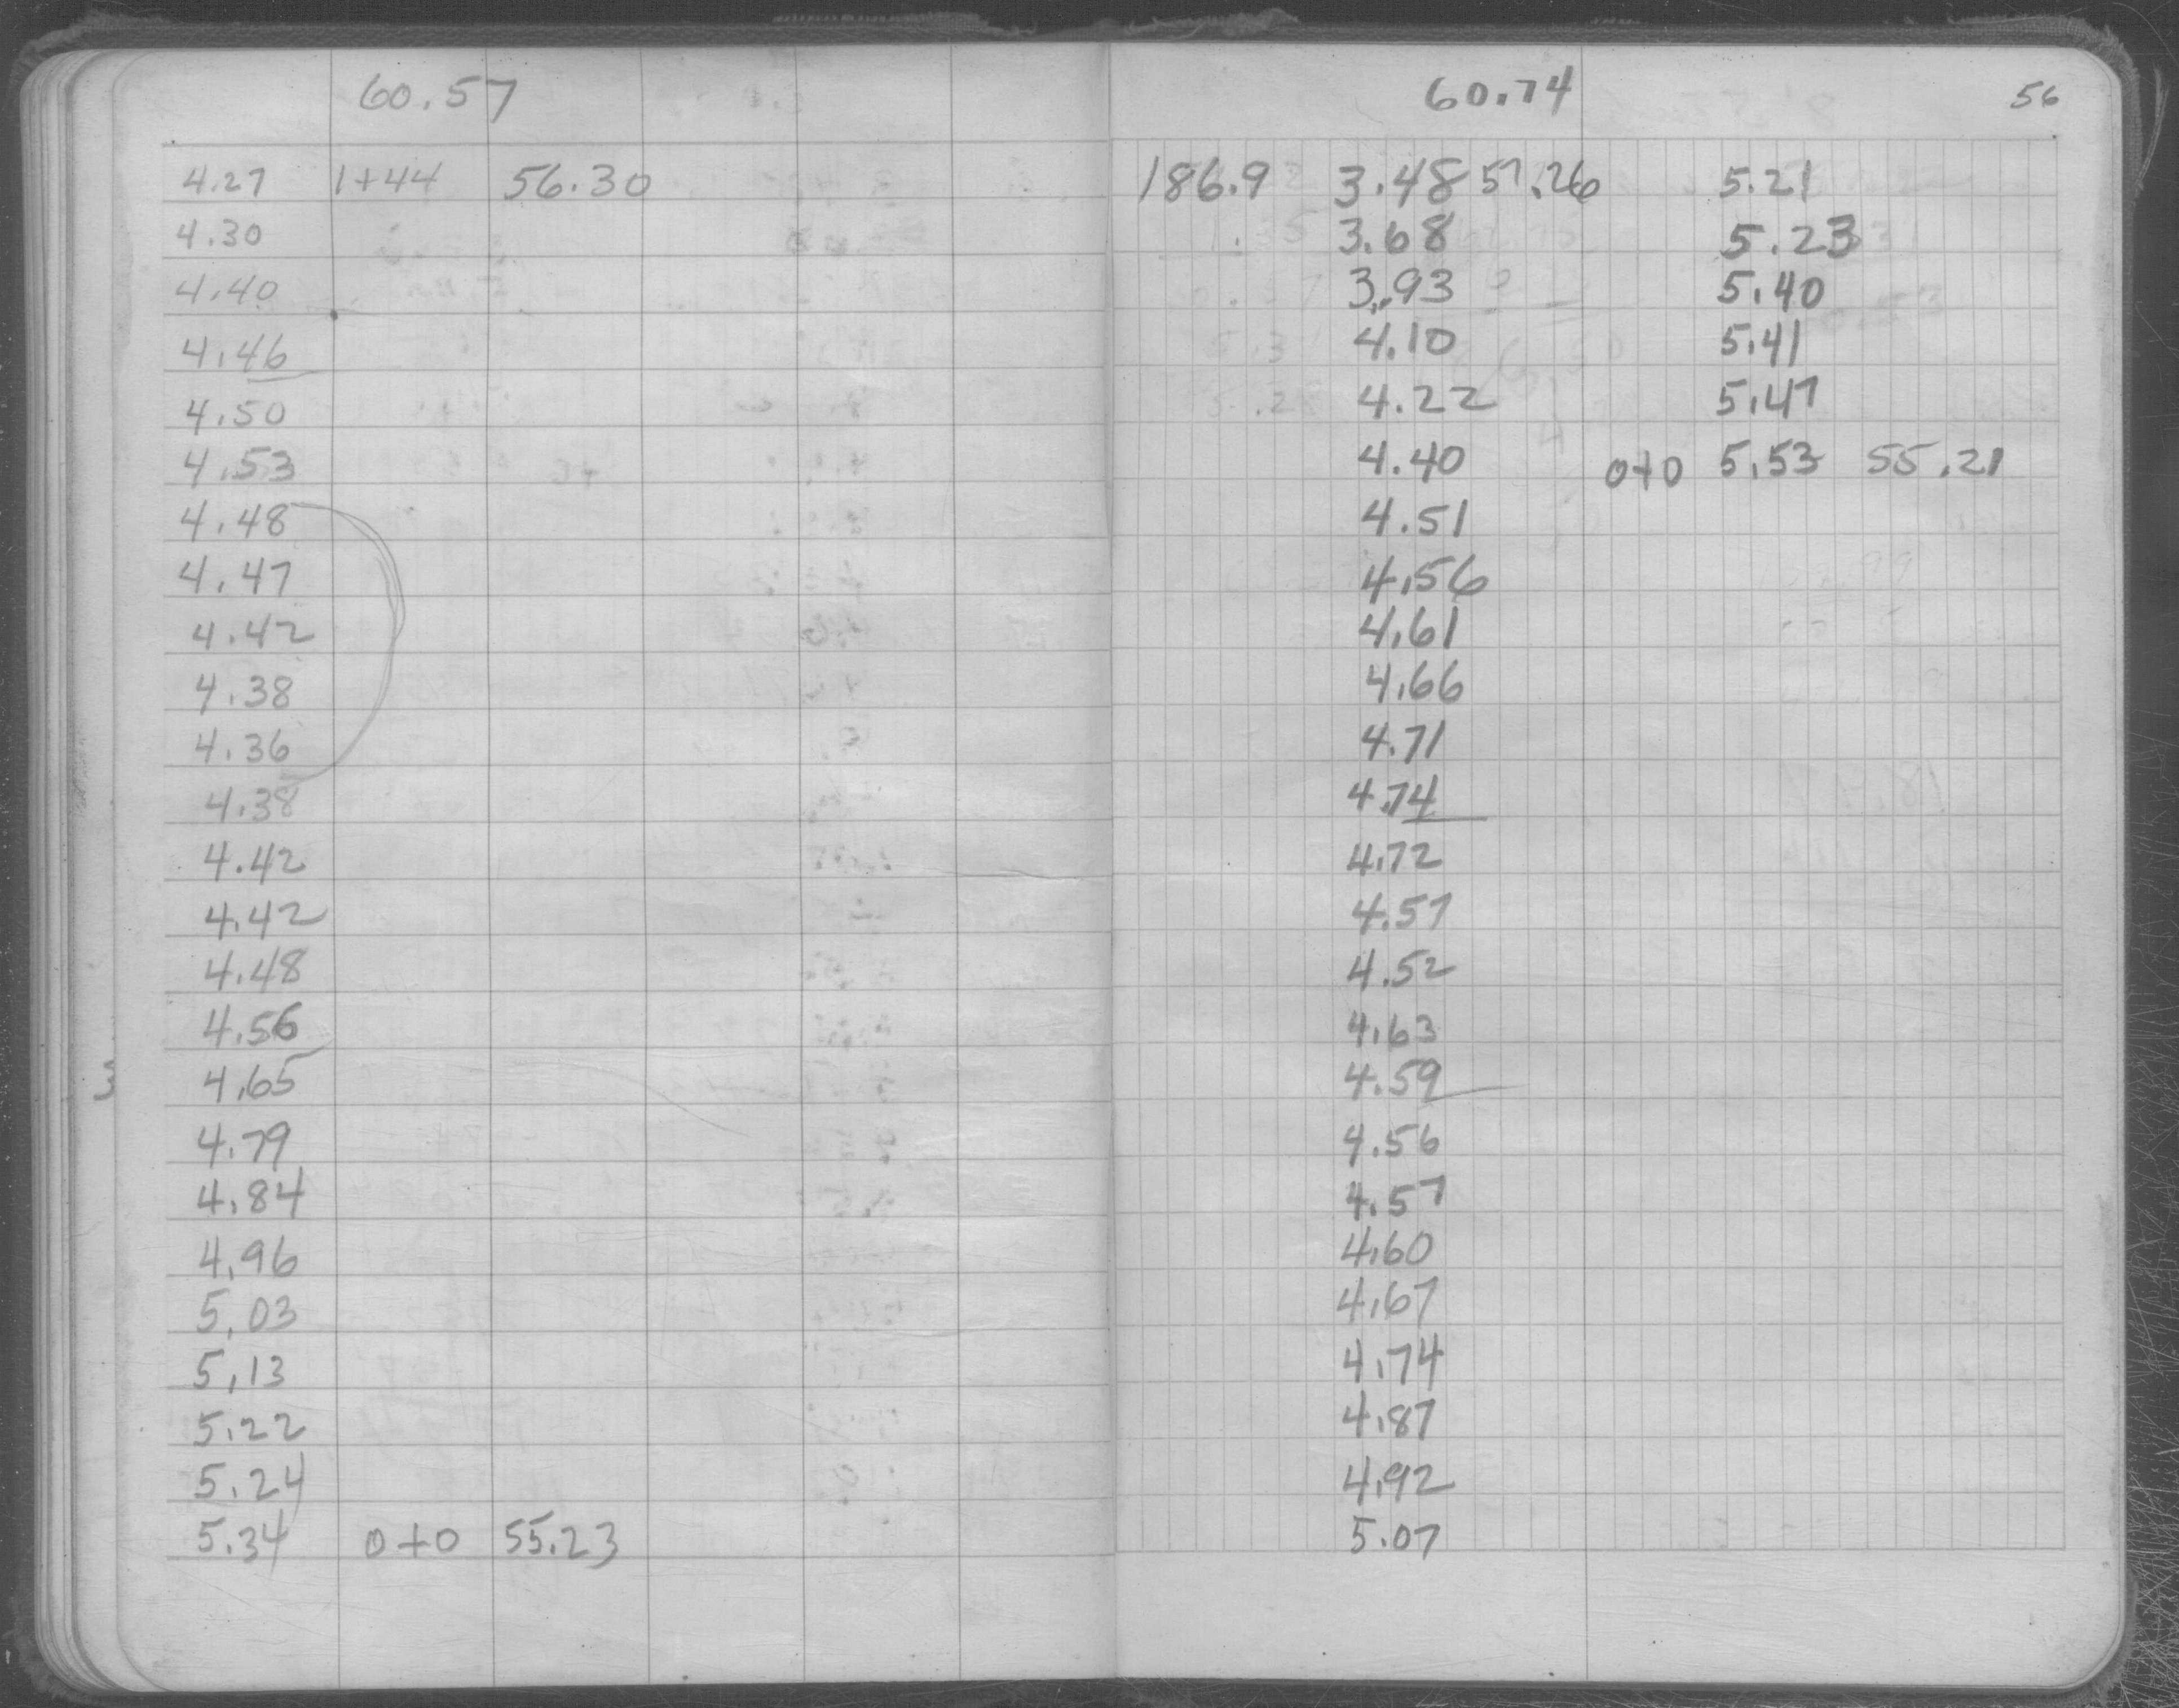 60.57
4.27 1+44 56.30
4.30
4.40
4.46
4.50
4.53
4.48
4.47
4.42
4.38
4.36
4.38
4.42
4.42
4.48
4.56
4.65
4.79
4.84
4.96
5.03
5.13
5.22
5.24
5.34 0+0 55.23
60.74 56
186.9 3.48 57.26 5.21
3.68 5.23
3.93 5.40
4.10 5.41
4.22 5.47
4.40 0+0 5.53 55.21
4.51
4.56
4.61
4.66
4.71
4.74
4.72
4.57
4.52
4.63
4.59
4.56
4.57
4.60
4.67
4.74
4.87
4.92
5.07